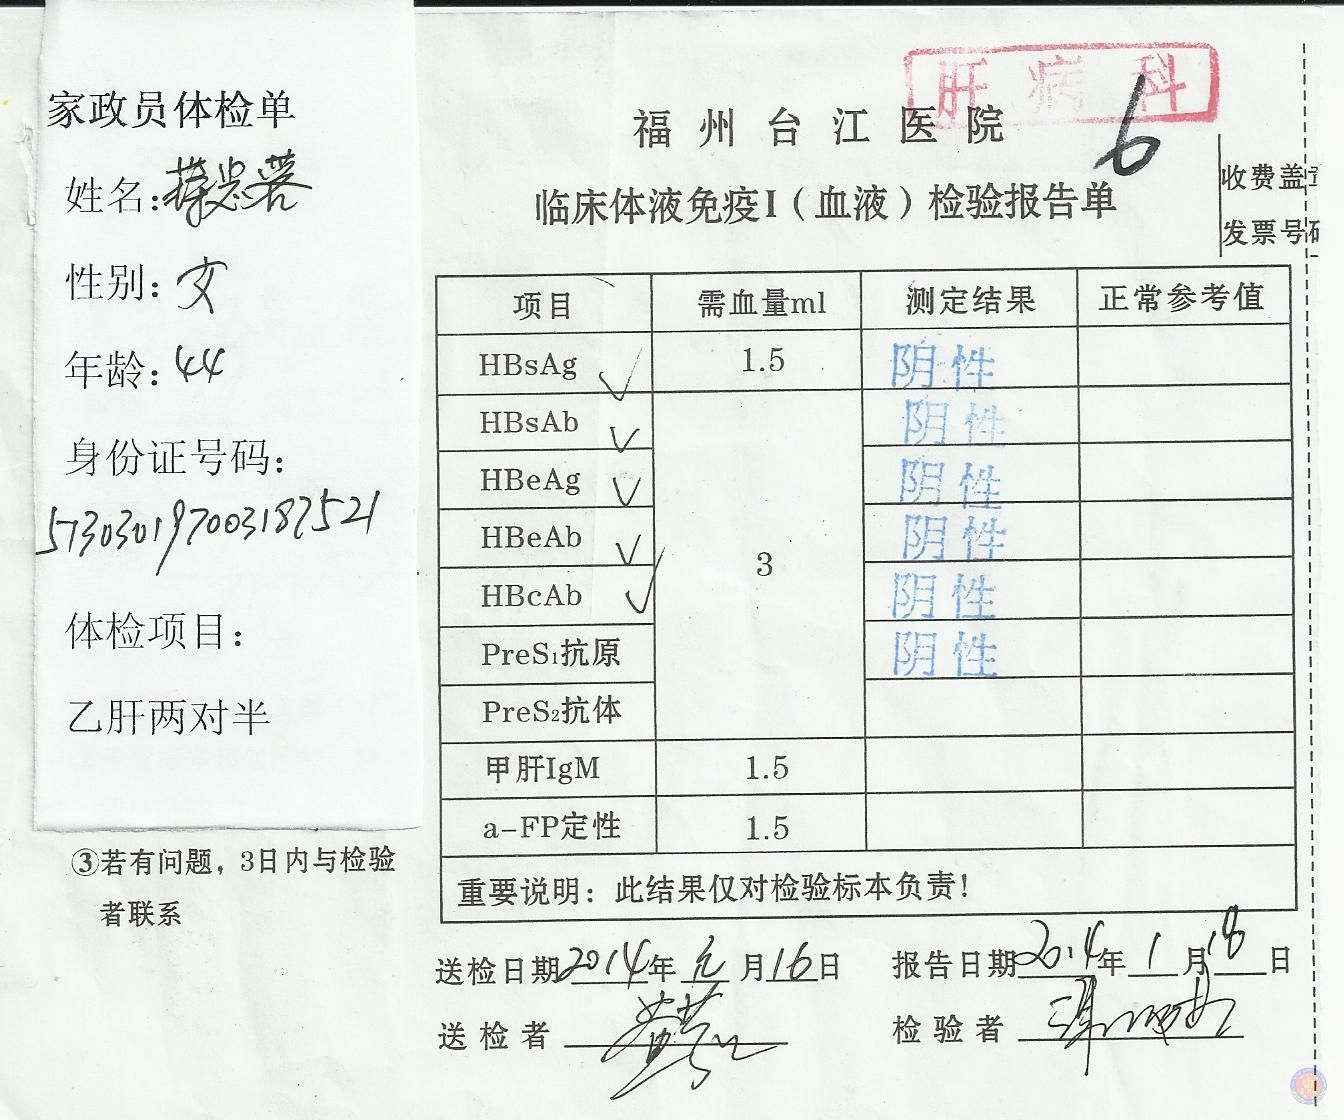 家政员体检单
姓名:
性别:女
年龄:44
身份证号码:
513030197003187521
体检项目:
乙肝两对半
③若有问题，3日内与检验
者联系
肝病科
福州台江医院
6
临床体液免疫I（血液）检验报告单
收费盖章
发票号码
项目 需血量ml 测定结果 正常参考值
HBsAg 1.5 阴性
HBsAb 阴性
HBeAg 阴性
HBeAb 3 阴性
HBcAb 阴性
PreS₁抗原 阴性
PreS₂抗体
甲肝IgM 1.5
a-FP定性 1.5
重要说明：此结果仅对检验标本负责!
送检日期2014年元月16日 报告日期2014年1月18日
送检者 检验者